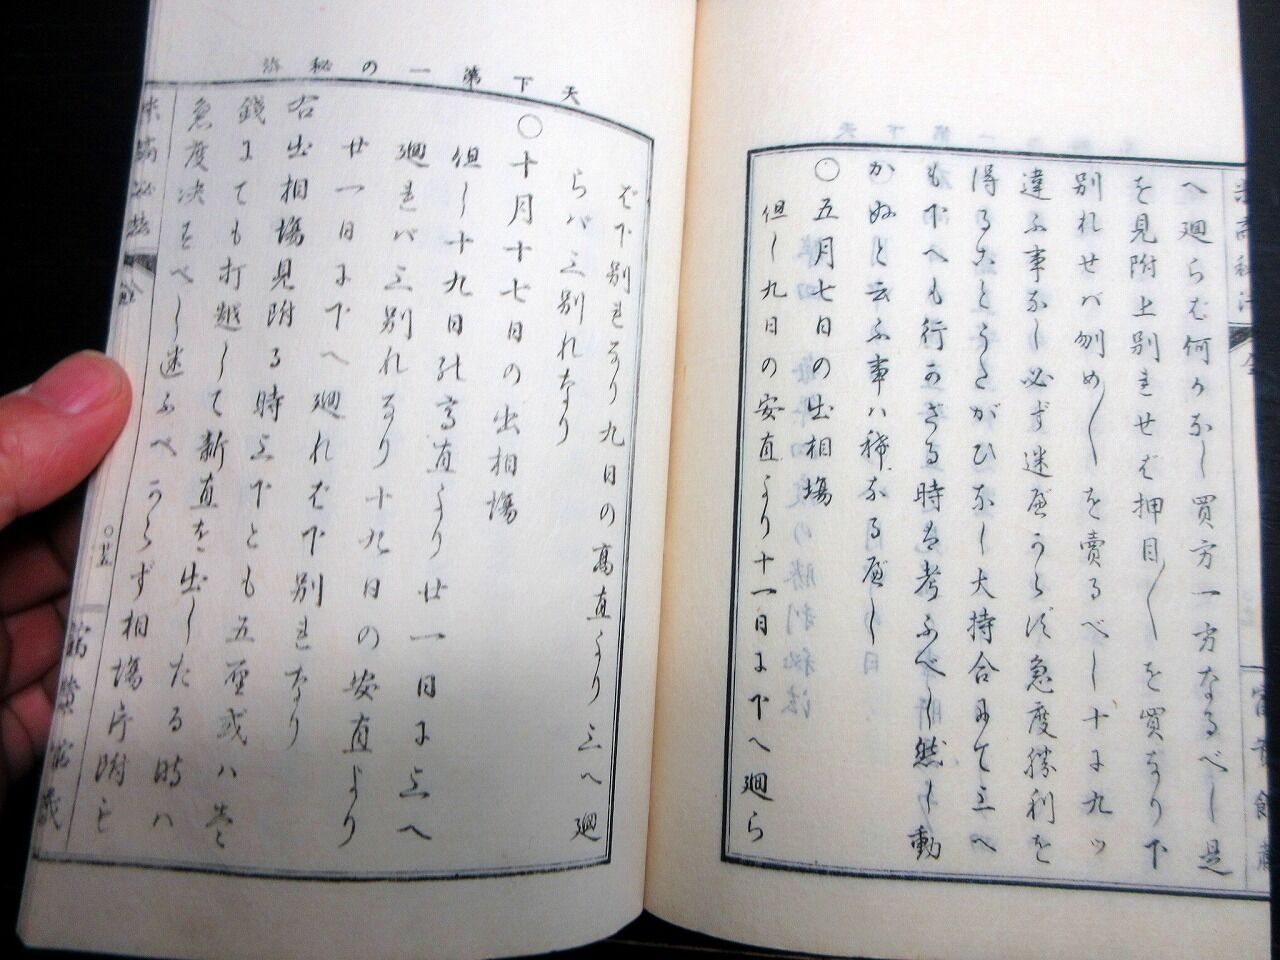 へ廻らば何かなし買方一方なるべし是
を見附上別れせば押目〱を買なり下
別れせバ刎め〱を賣るべし十に九ッ
違ふ事なし必ず迷ふべからず急度勝利を
得ることうたがひなし大持合にて上へ
も下へも行かざる時は考ふべし然し動
かぬと云ふ事ハ稀なるべし
〇五月七日の出相場
但し九日の安直より十一日に下へ廻ら
天下第一の秘法
ば下別れなり九日の高直より上へ廻
らバ上別れなり
〇十月十七日の出相場
但し十九日の高直より廿一日に上へ
廻れバ上別れなり十九日の安直より
廿一日に下へ廻れば下別れなり
右出相場見附る時上下とも五厘或ハ壱
錢にても打越して新直を出したる時ハ
急度決すべし迷ふべからず相場序附も